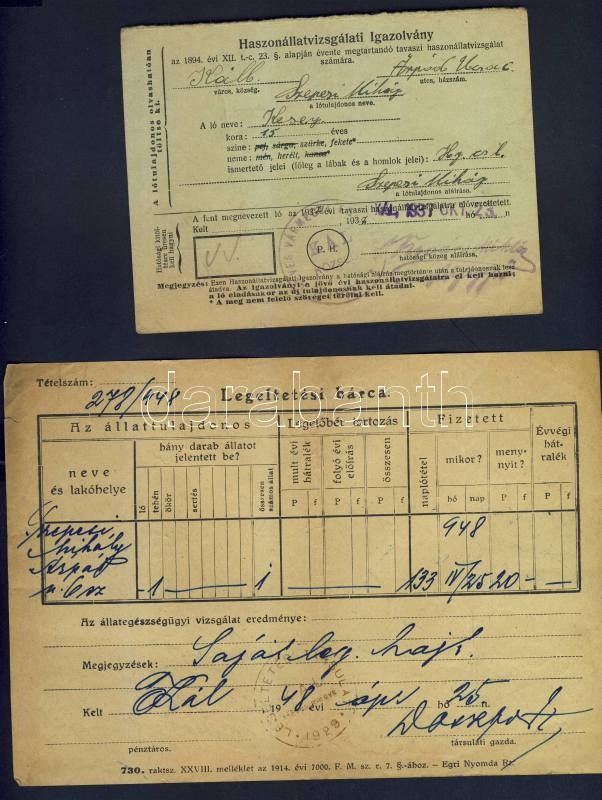 A lótulajdonos olvashatóan
töltse ki.
Haszonállatvizsgálati Igazolvány
az 1894. évi XII. t.-c. 23. §. alapján évente megtartandó tavaszi haszonállatvizsgálat
számára.
Káll Árpád
város, község. utca, házszám.
Szepesi Mihály
a lótulajdonos neve.
A ló neve: Kesey
kora: 15 éves
színe: pej, sárga, szürke, fekete*
neme: mén, herélt, kanca*
ismertető jelei (főleg a lábak és a homlok jelei)
Szepesi Mihály
a lótulajdonos aláírása.
A fent megnevezett ló az 193 évi tavaszi haszonállatvizsgálatra elővezettetett.
Kelt 193 1937 OKT 23. hó n
P. H.
hatósági közeg aláírása.
Megjegyzés: Ezen Haszonállatvizsgálati-Igazolvány a hatósági aláírás megtörténte után a tulajdonosnak lesz
átadva. Az Igazolványt a jövő évi haszonállatvizsgálatra el kell hozni;
a ló eladásakor az új tulajdonosnak kell átadni.
* A meg nem felelő szöveget törölni kell.
Tételszám: 278/948
Legeltetési bárca.
darabanth
Az állattulajdonos Legelőbér tartozás Fizetett Évvégi hátralék
neve és lakóhelye
hány darab állatot jelentett be?
ló tehén ökör sertés összesen számos állat
mult évi hátralék folyó évi előírás összesen
naplótétel mikor? mennyit?
P f P f P f hó nap P f P f
Szepesi 948
Mihály
Árpád
u. 6 sz — 1 — 1 133 IV/25 20 — —
Az állategészségügyi vizsgálat eredménye:
Megjegyzések: Saját leg. hajt.
Kelt Kál 1948 évi ápr hó 25 n.
1929
pénztáros. társulati gazda.
730. raktsz. XXVIII. melléklet az 1914. évi 7000. F. M. sz. r. 7. §.-ához. — Egri Nyomda Rt.